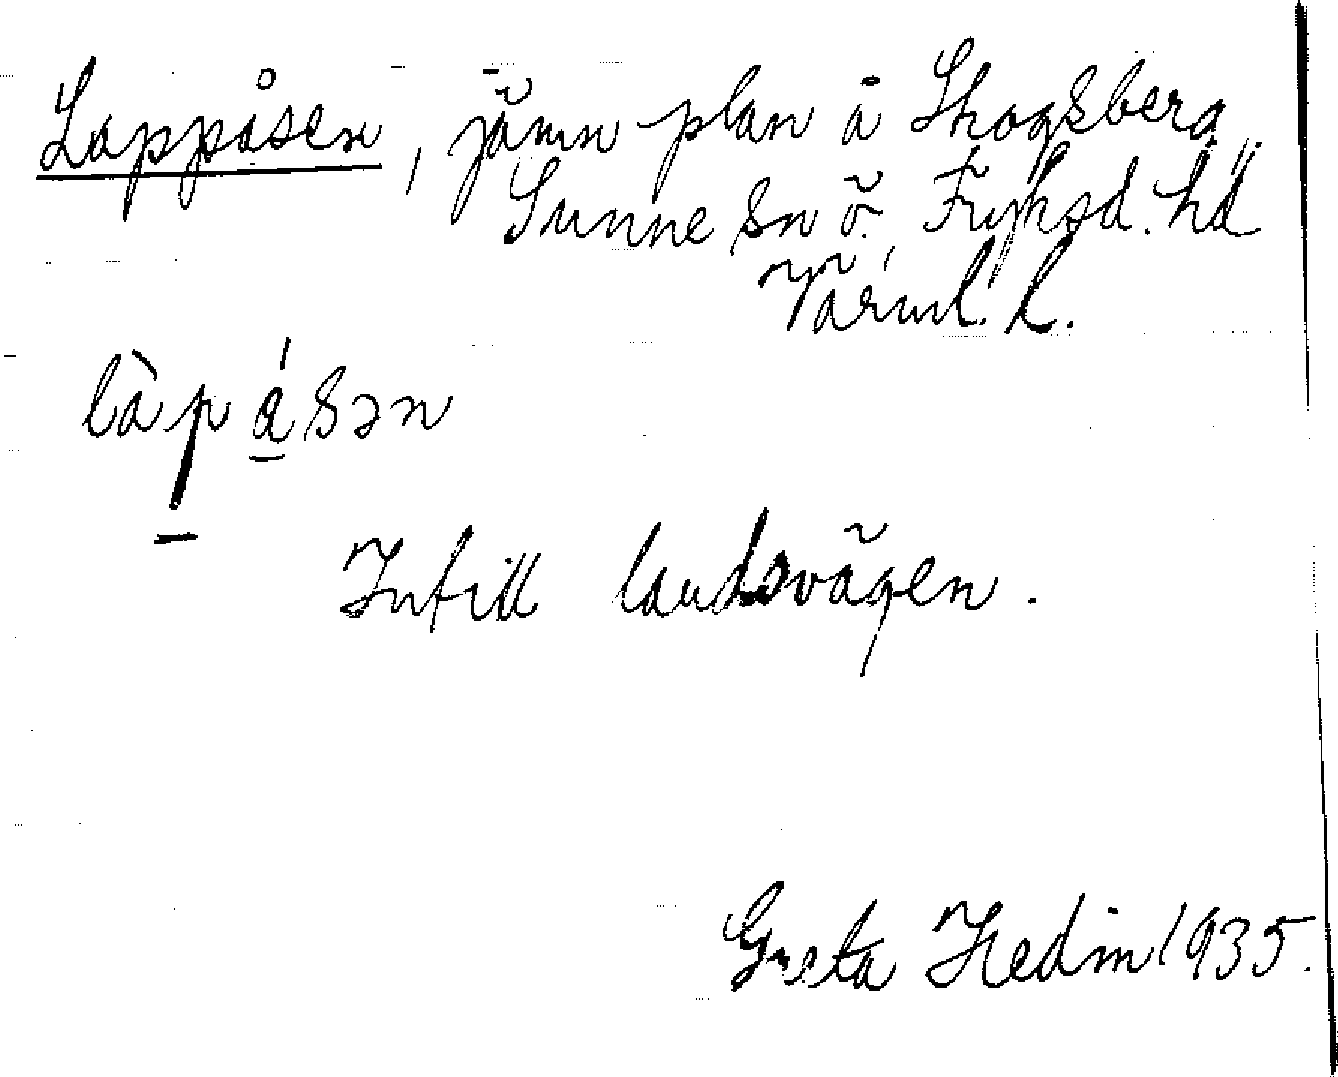 Lappåsen, jämn plan å Skogsberg,
Sunne sn ö. Fryksd. hd
Värml. l.
làpá̲sən
Intill landsvägen.
Greta Hedin 1935.